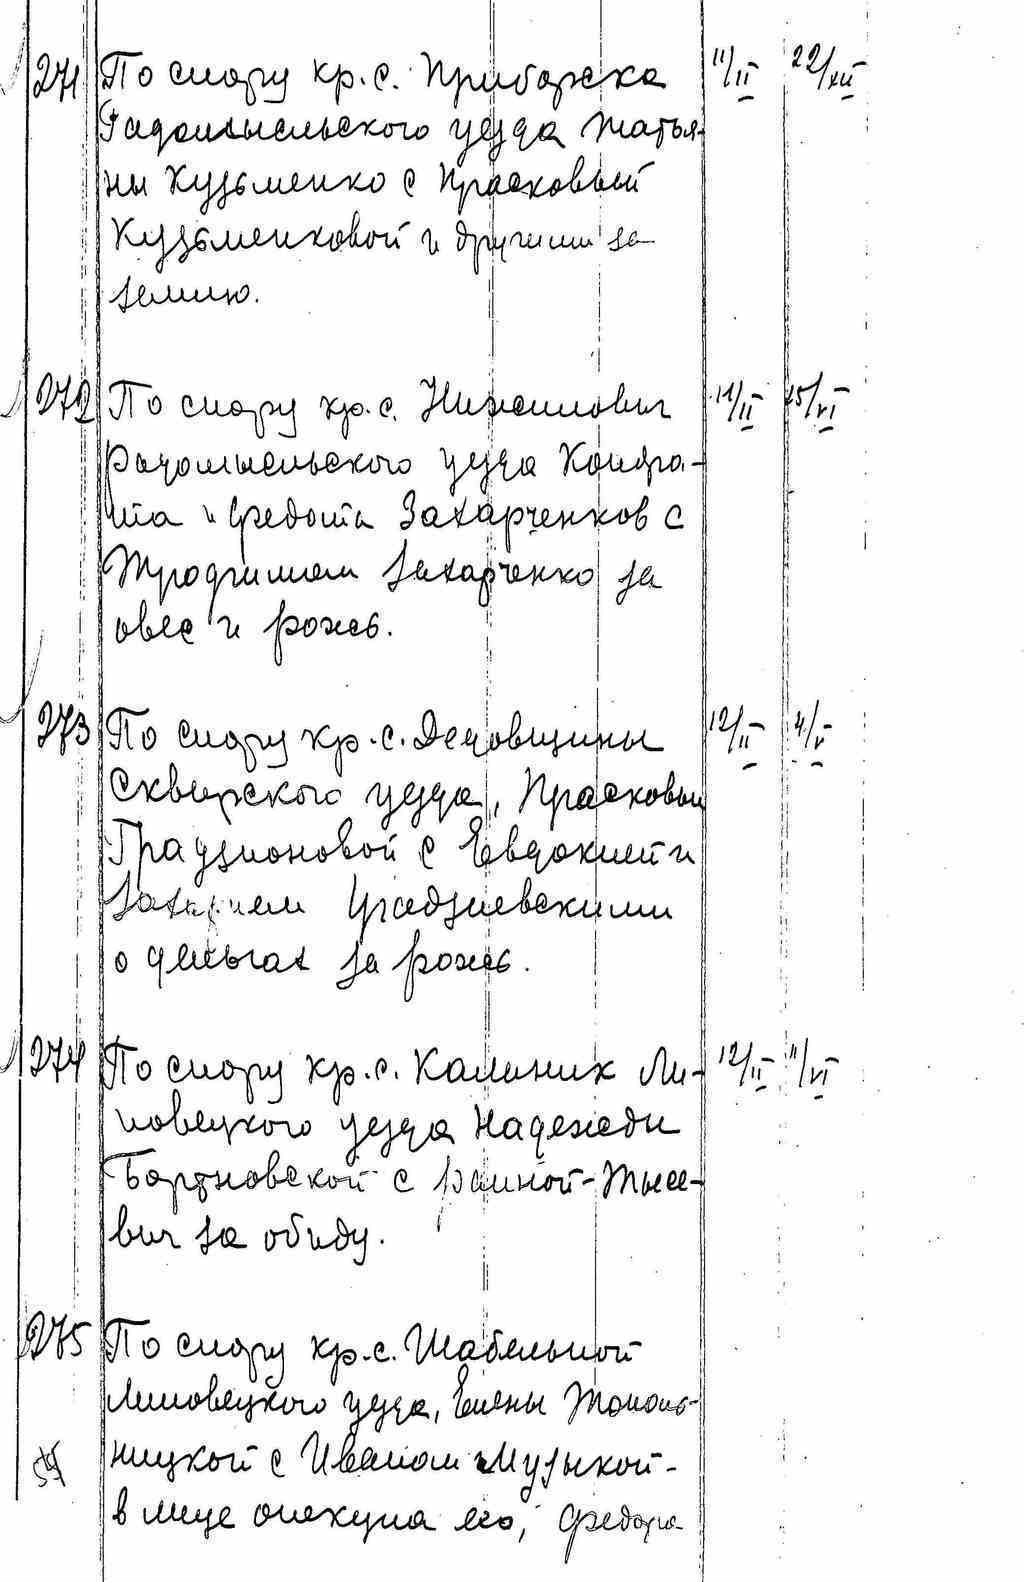 271 По спору кр. с. Приборска 11/II 22/XII
Радомысльского уезда Татья-
ны Кузьменко с Прасковьей
Кузьменковой и другими за
землю.
272 По спору кр. с. Нижиловичи 11/II 15/VI
Радомысльского уезда Кондра-
та и Федота Захарченков с
Трофимом Захарченко за
овес и рожь.
273 По спору кр. с. Дедовщины 12/II 4/V
Сквирского уезда, Прасковьи
Градзионовой с Евдокией и
Захарием Градзиевскими
о деньгах за рожь.
274 По спору кр. с. Кальник Ли- 12/II 11/VI
повецкого уезда Надежды
Бортновской с Тысе-
вич за обиду.
275 По спору кр. с. Шабельной
Липовецкого уезда, Елены Тополь-
ницкой с Иваном Музыкой -
в лице опекуна его, Федора